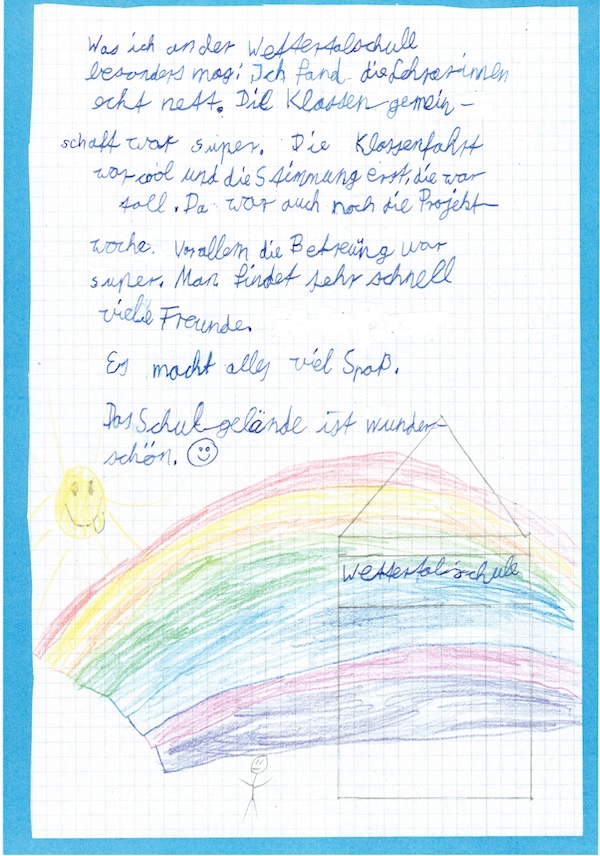 Was ich an der Wettertalschule
besonders mag: Ich fand die Lehrerinnen
echt nett. Die Klassengemein-
schaft war super. Die Klassenfahrt
war cool und die Stimmung erst, die war
toll. Da war auch noch die Projekt-
woche. Vorallem die Betreüng war
super. Man findet sehr schnell
viele Freunde.
Es macht alles viel Spaß.
Das Schul-gelände ist wunder-
schön.
Wettertalschule